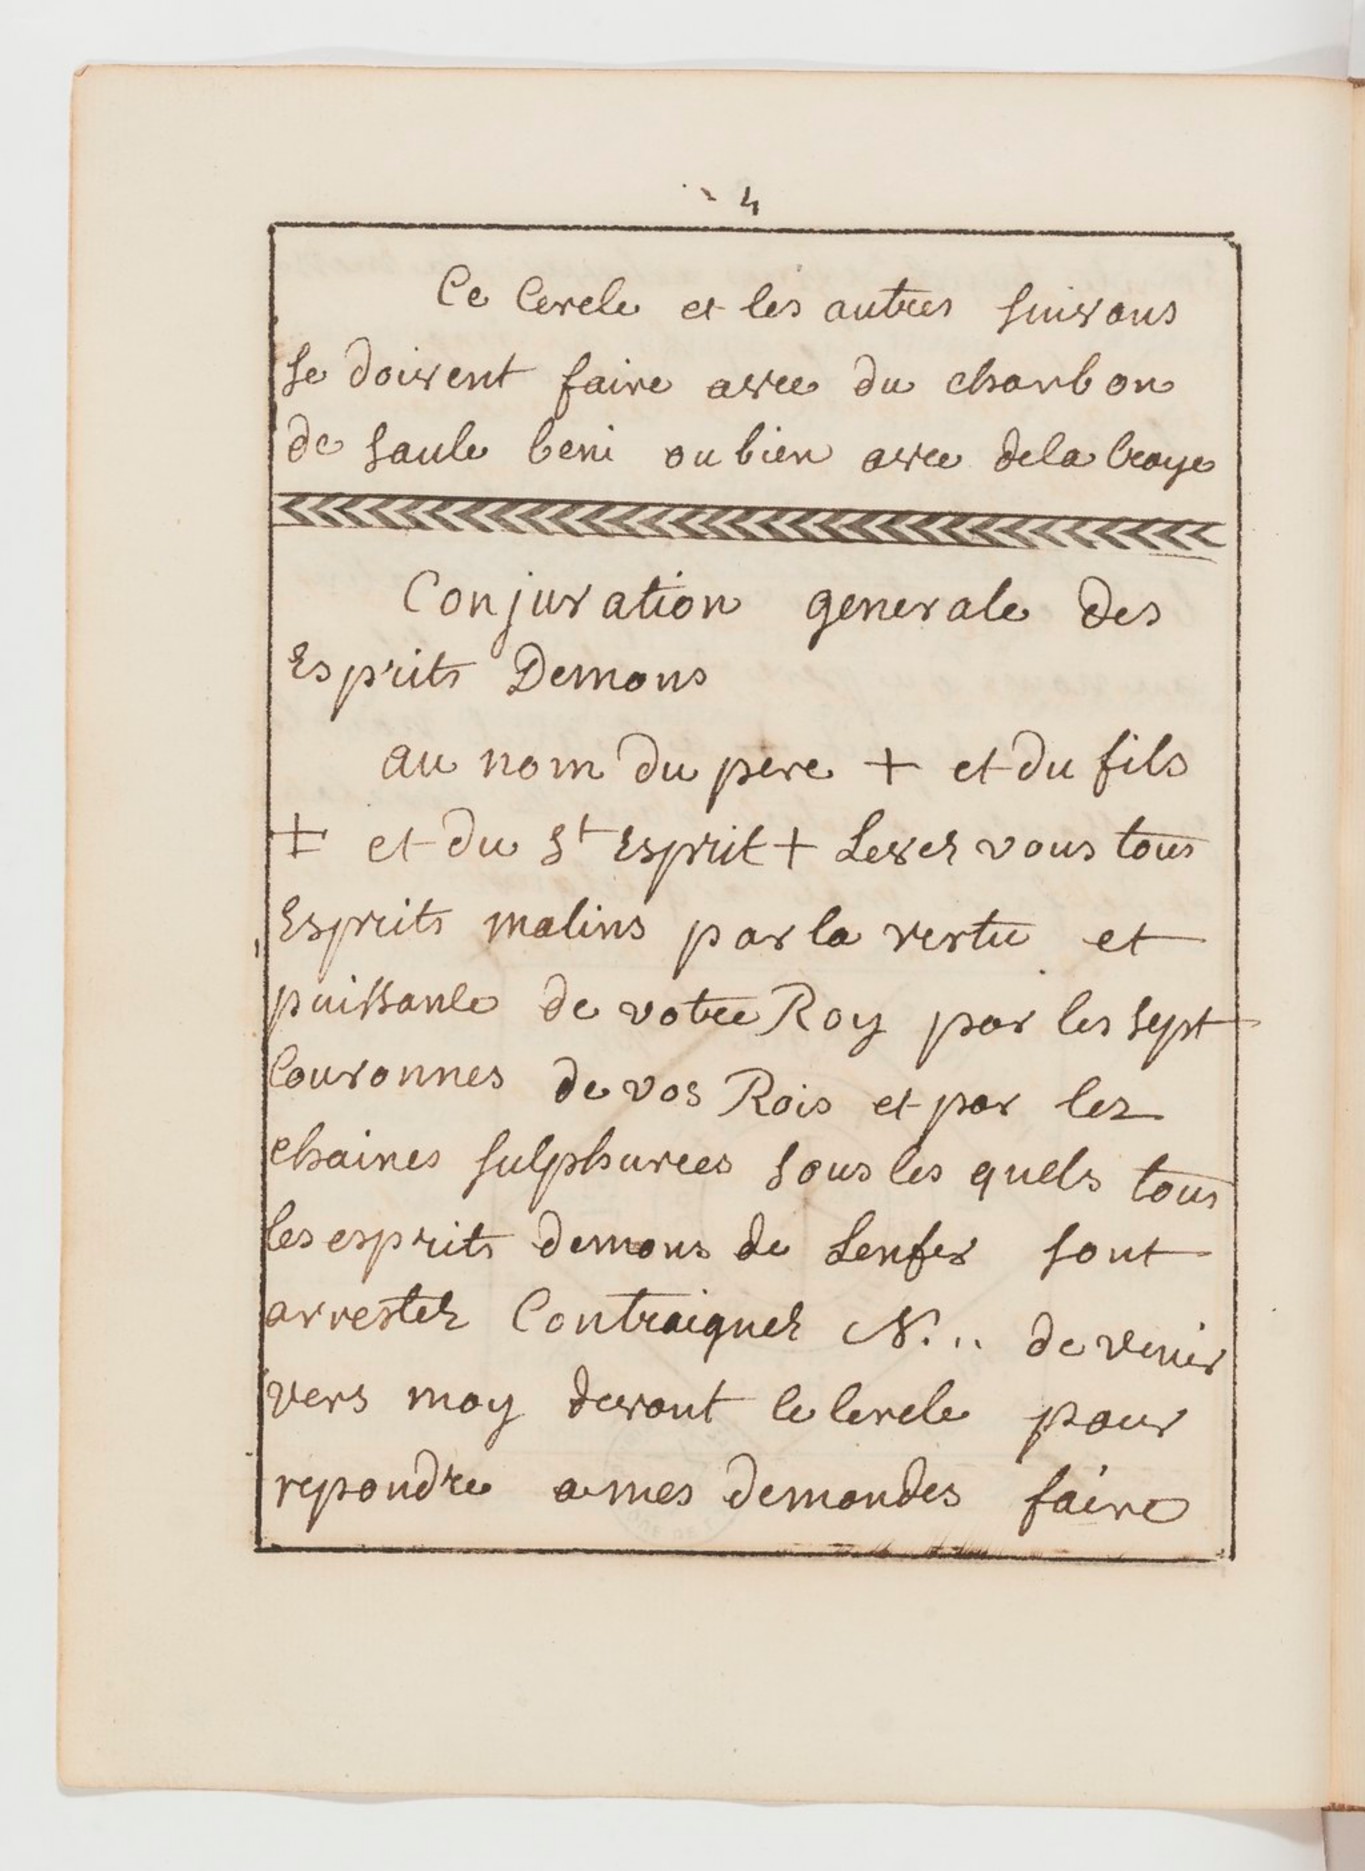 4
Ce Cercle et les autres suivans
se doivent faire avec du charbon
de saule beni ou bien avec dela Craye
Conjuration generale des
Esprits Demons
au nom du pere + et du fils
+ et du St Esprit + Levez vous tous
Esprits malins par la vertu et
puissance de votre Roy par les sept
Couronnes de vos Rois et par les
chaines sulphurees sous les quels tous
les esprits demons de Lenfer sont
arrestez Contraignez N... de venir
vers moy devant le Cercle pour
repondre a mes demandes faire